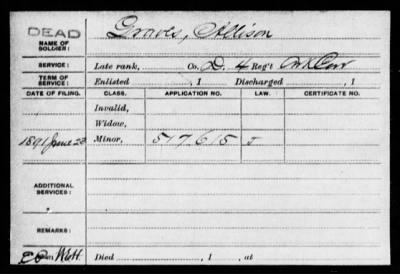 DEAD
NAME OF SOLDIER: Graves, Allison
SERVICE: Late rank, Co. D. 4 Reg't
TERM OF SERVICE: Enlisted , 1 Discharged , 1
DATE OF FILING. CLASS. APPLICATION NO. LAW. CERTIFICATE NO.
Invalid,
Widow,
1891 June 23 Minor, 517.615 J
ADDITIONAL SERVICES:
REMARKS:
Died , 1 , at